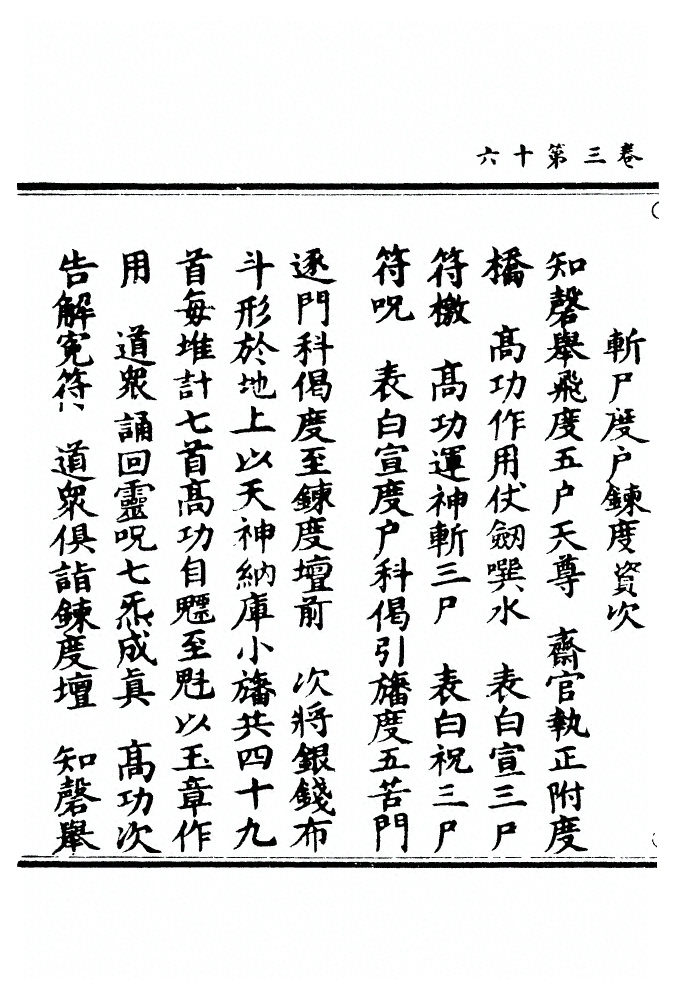 卷三第十六
斬尸度户鍊度資次
知磬舉飛度五户天尊　齋官執正附度
橋　髙功作用仗劒噀水　表白宣三尸
符檄　髙功運神斬三尸　表白祝三尸
符呪　表白宣度户科偈引旛度五苦門
逐門科偈度至鍊度壇前　次將銀錢布
斗形於地上以天神納庫小旛共四十九
首每堆計七首髙功自魒至魁以玉章作
用　道衆誦回靈呪七炁成眞　髙功次
告解寃符　道衆俱詣鍊度壇　知磬舉